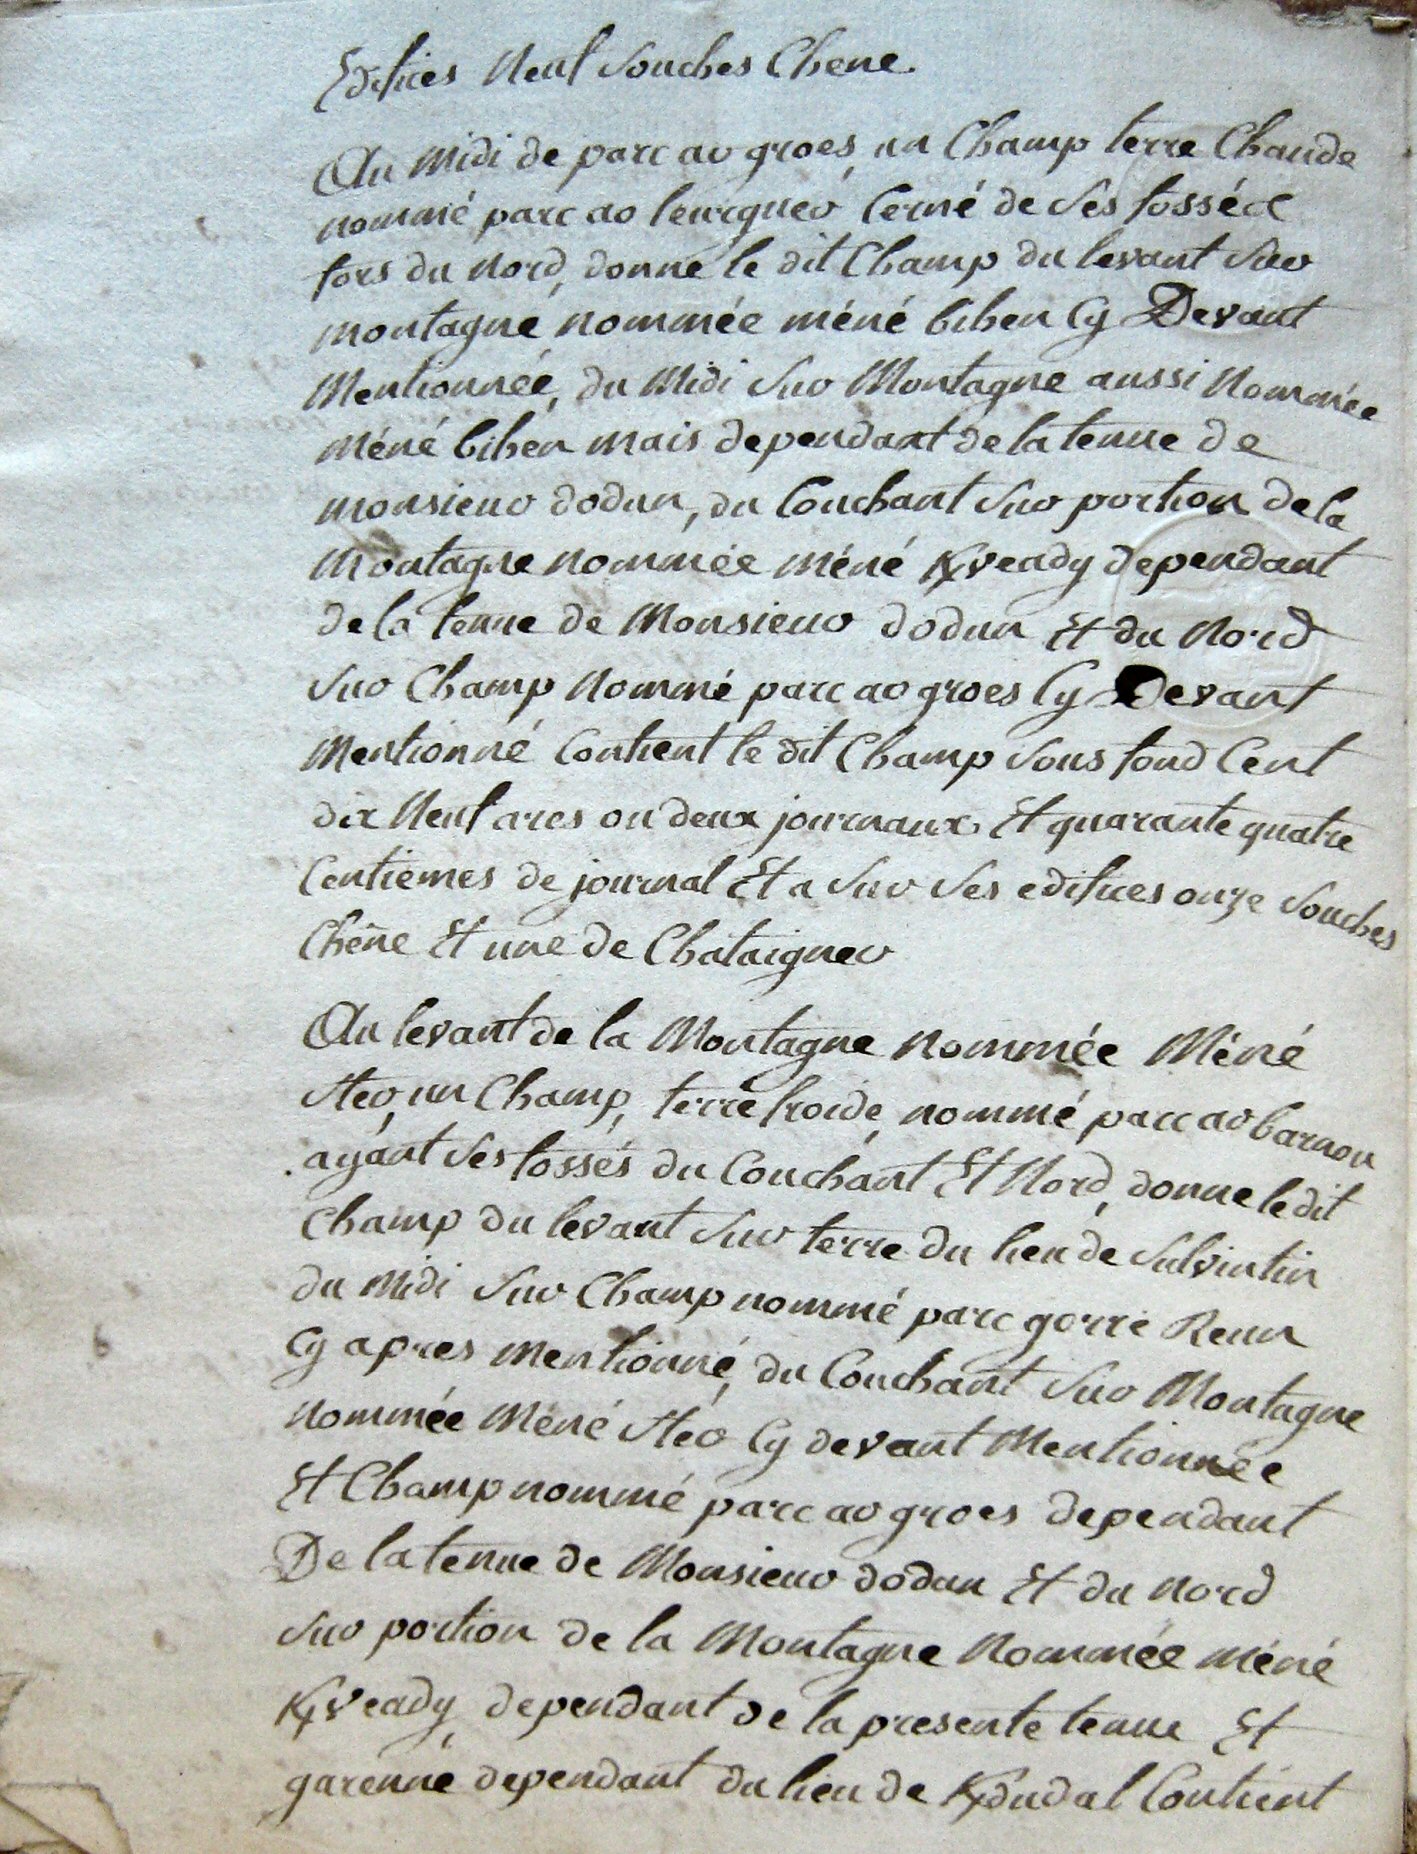 Edifices Neuf souches Chene.
Au Midi de parc ar groes, un Champ terre Chaude
nommé parc ar leurguer Cerné de ses fossées
fors du nord, donne le dit Champ du levant sur
montagne nommée méné biben Cy Devant
Mentionnée, du Midi sur Montagne aussi Nommée
Méné biben mais dependant de la tenue de
monsieur dodun, du Couchant sur portion de la
Montagne nommée Méné Kveady dependant
de la tenue de Monsieur dodun Et du Nord
sur Champ Nommé parc ar groes Cy Devant
Mentionné Contient le dit Champ sous fond Cent
dix Neuf ares ou deux journaux Et quarante quatre
Centièmes de journal Et a sur ses edifices onze souches
Chêne Et une de Chataigner
Au levant de la Montagne Nommée Méné
ster, un Champ, terre froide, nommé parc ar barnou
ayant ses fossés du Couchant Et Nord, donne le dit
Champ du levant sur terre du lieu de Sulvintin
du Midi sur Champ nommé parc gorré Reun
Cy apres Mentionné, du Couchant sur Montagne
Nommée Méné ster Cy devant Mentionnée
Et Champ nommé parc ar groes dependant
De la tenue de Monsieur dodun Et du Nord
sur portion de la Montagne Nommée méné
Kveady dependant de la presente tenue Et
garenne dependant du lieu de Kdudal Contient